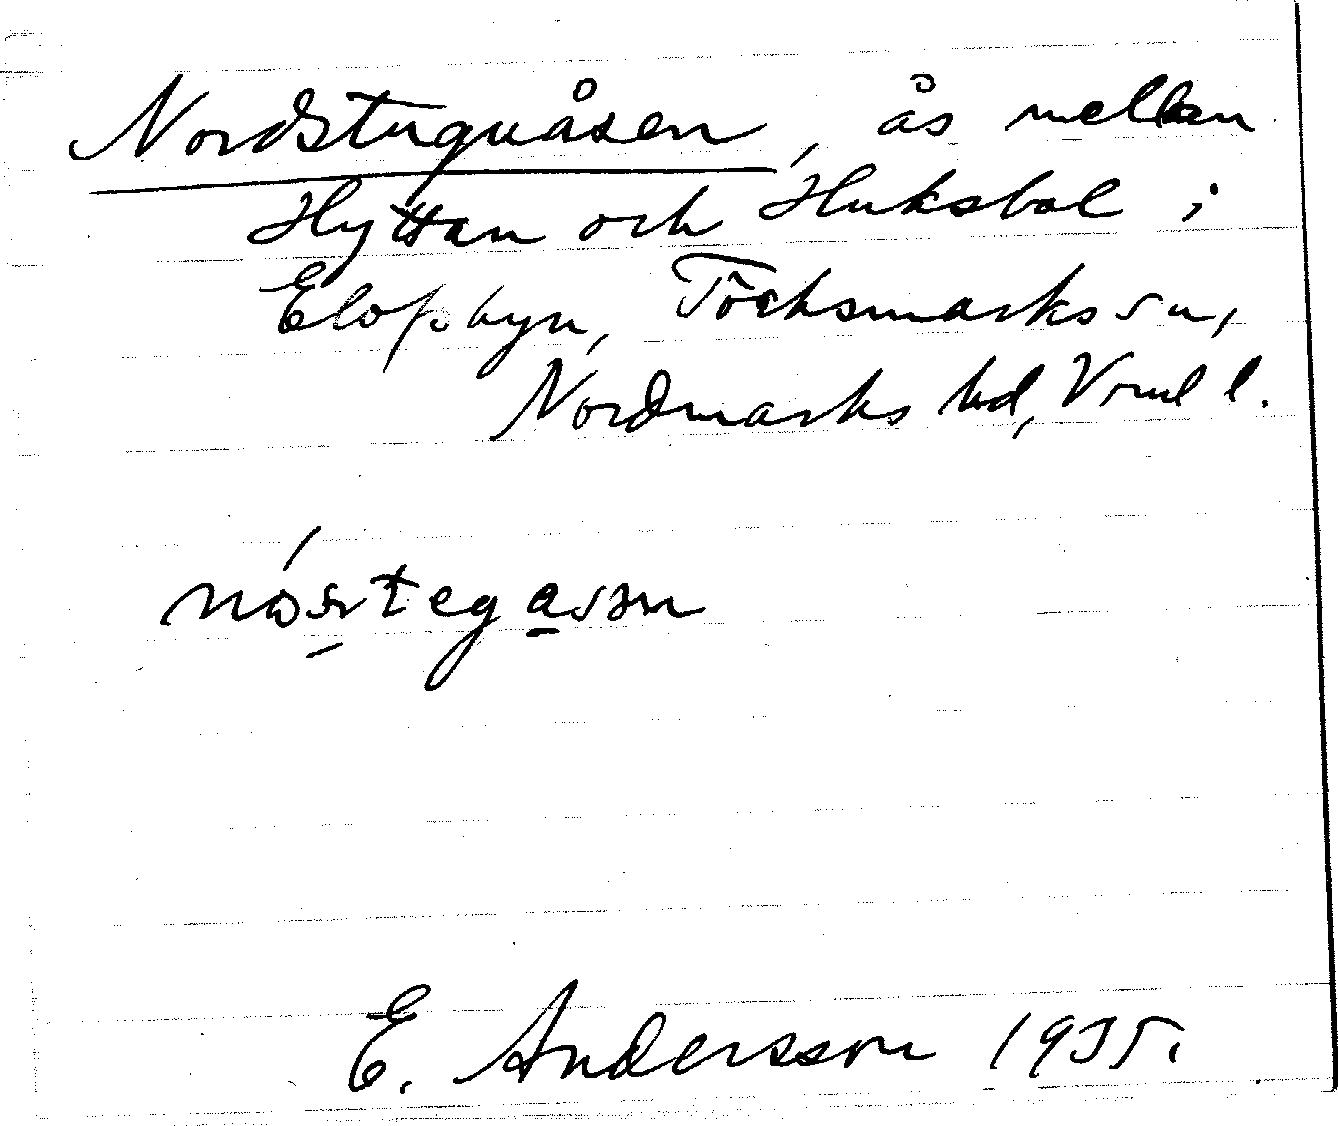 Nordstuguåsen, ås mellan
Hyttan och Huksbol i
Elofsbyn, Töcksmarks sn,
Nordmarks hd, Vrml l.
E. Andersson 1935.